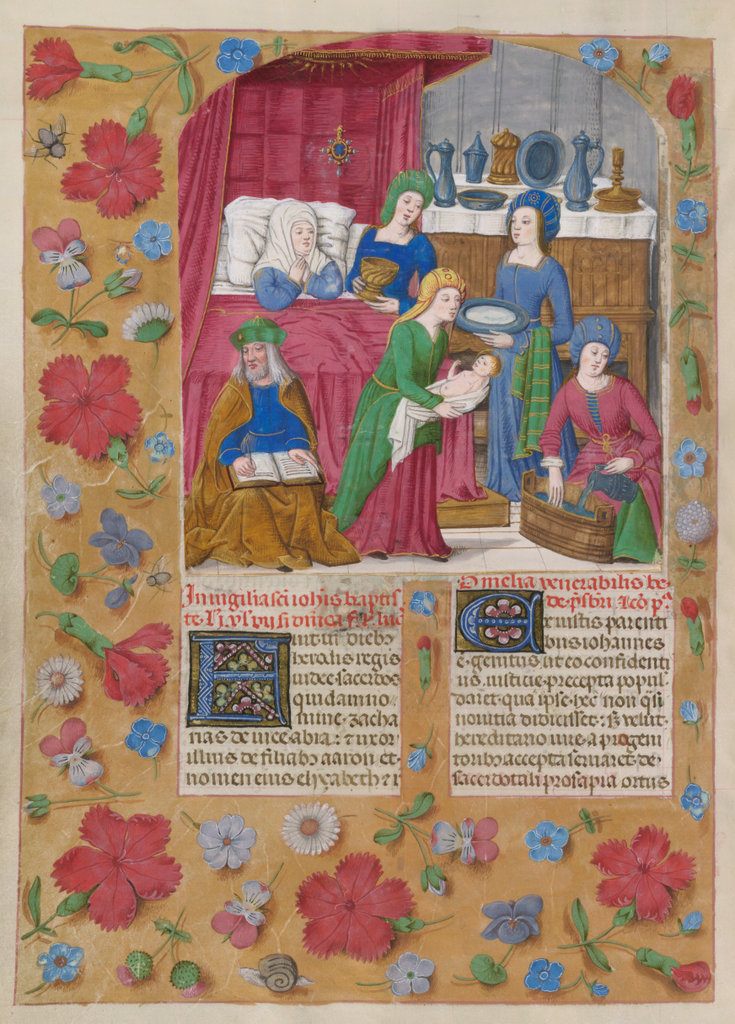 In vigilia scī ioh̄is baptis
te. Lī. vs̄ vsi sī dn̄ica ē. F. luc̄
Fuit in diebȝ
herodis regis
iudee sacerdos
quidam no
mine zacha
rias de uice abia: ⁊ uxor
illius de filiabȝ aaron et
nomen eius elyzabeth ⁊ r
Omelia venerabilis be
de p̄sbr̄i
Ex iustis parenti
bus iohannes
est genitus ut eo confidenti
us iusticie precepta popul
daret qua ipse hec non q̄si
nouitia didicisset: sꝫ velut
hereditario iure a progeni
toribȝ accepta seruaret de
sacerdotali prosapia ortus